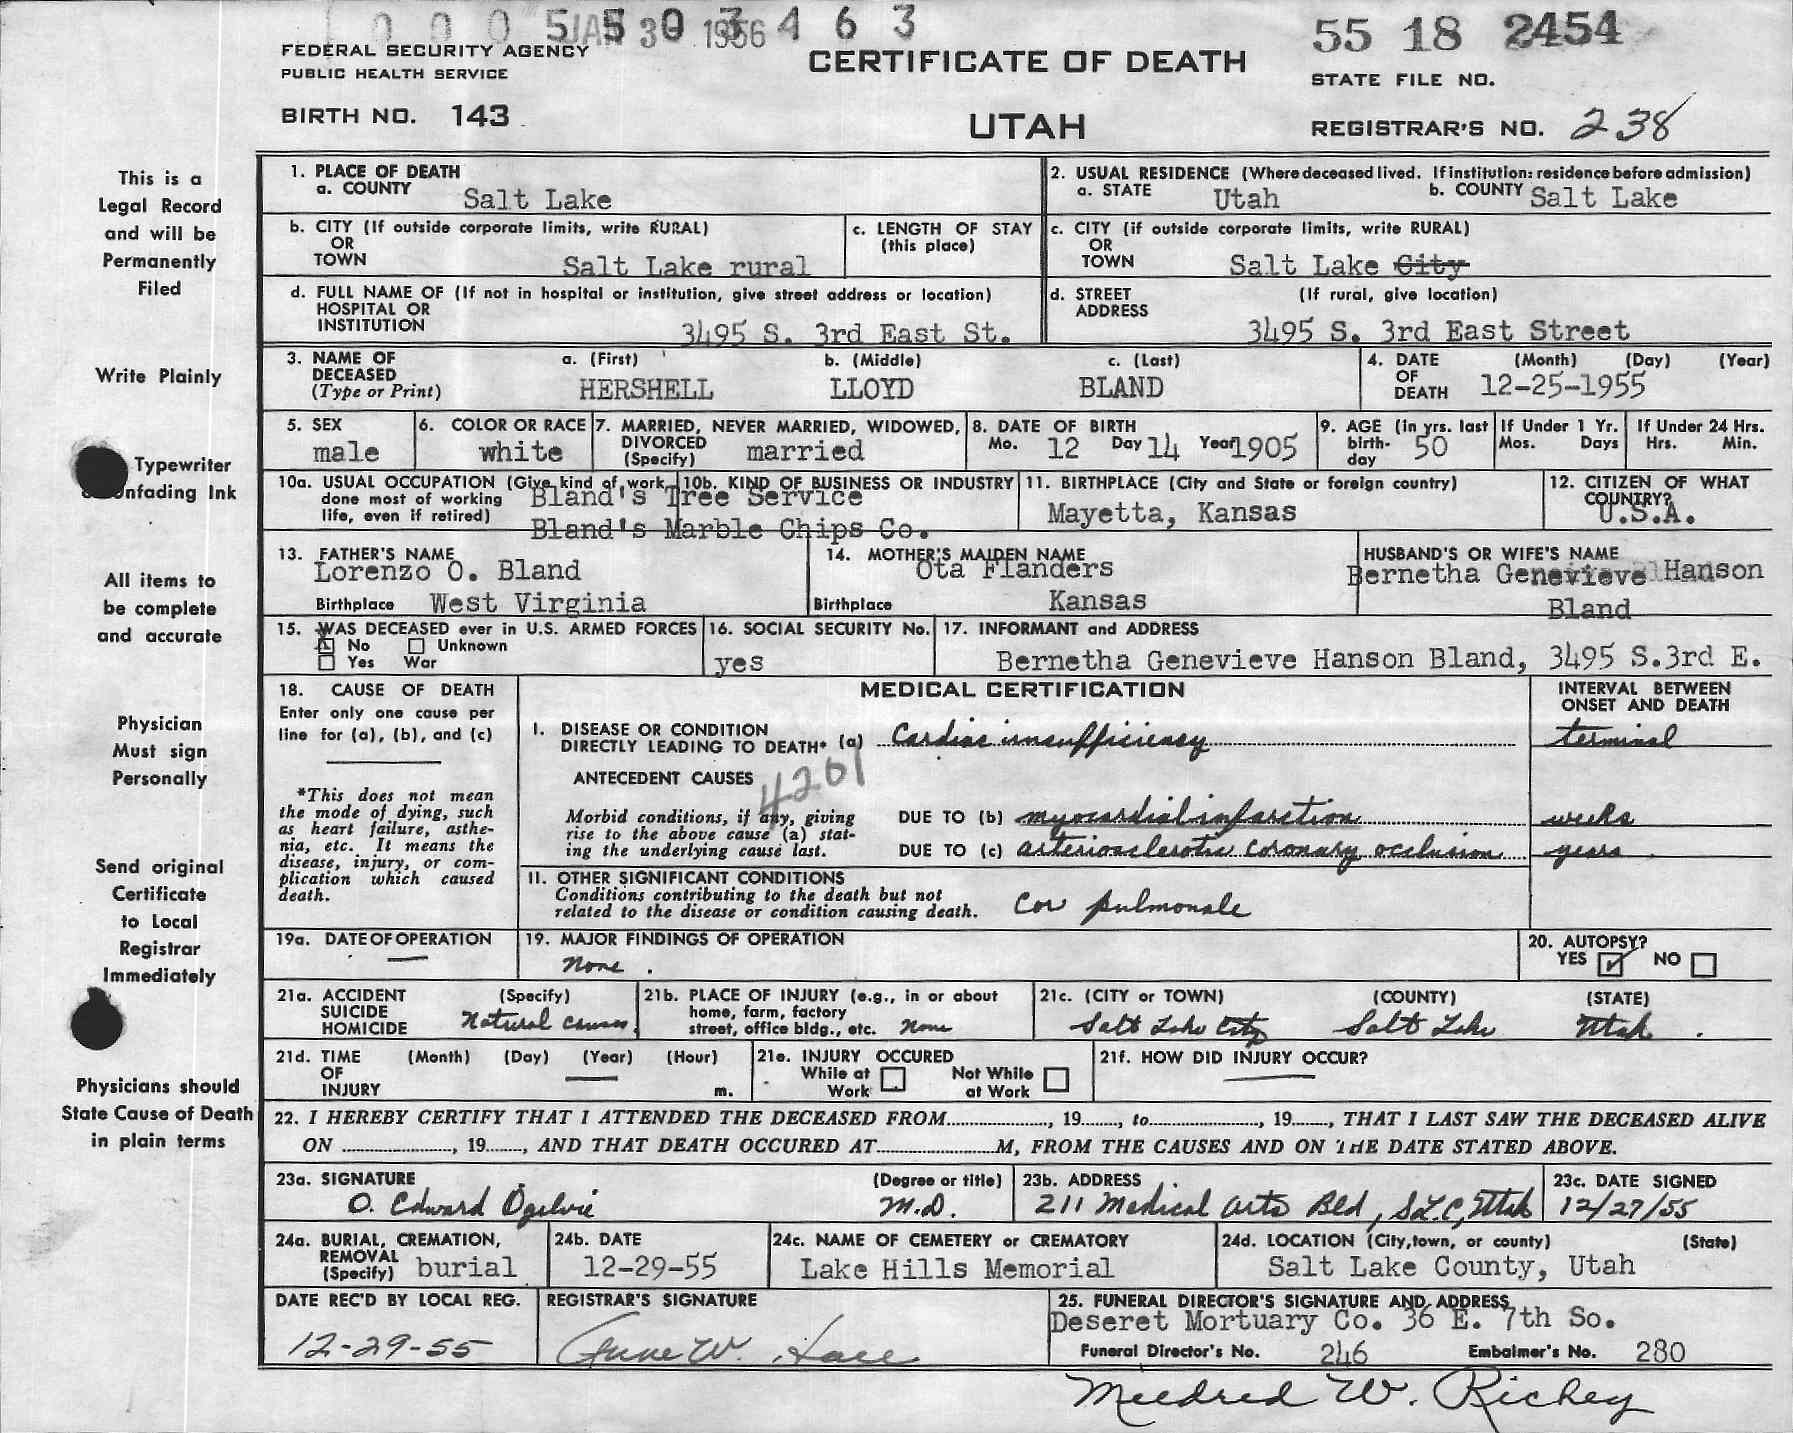 0 0 0 5 5 0 3 4 6 3
JAN 30 1956
55 18 2454
FEDERAL SECURITY AGENCY
PUBLIC HEALTH SERVICE
CERTIFICATE OF DEATH
STATE FILE NO.
BIRTH NO. 143
UTAH
REGISTRAR'S NO. 238
This is a
Legal Record
and will be
Permanently
Filed
Write Plainly
Typewriter
nfading Ink
All items to
be complete
and accurate
Physician
Must sign
Personally
Send original
Certificate
to Local
Registrar
Immediately
Physicians should
State Cause of Death
in plain terms
1. PLACE OF DEATH
a. COUNTY Salt Lake
2. USUAL RESIDENCE (Where deceased lived. If institution: residence before admission)
a. STATE Utah b. COUNTY Salt Lake
b. CITY (If outside corporate limits, write RURAL)
OR
TOWN Salt Lake rural
c. LENGTH OF STAY
(this place)
c. CITY (if outside corporate limits, write RURAL)
OR
TOWN Salt Lake City
d. FULL NAME OF (If not in hospital or institution, give street address or location)
HOSPITAL OR
INSTITUTION 3495 S. 3rd East St.
d. STREET (If rural, give location)
ADDRESS
3495 S. 3rd East Street
3. NAME OF DECEASED
(Type or Print)
a. (First) b. (Middle) c. (Last)
HERSHELL LLOYD BLAND
4. DATE OF DEATH (Month) (Day) (Year)
12-25-1955
5. SEX
male
6. COLOR OR RACE
white
7. MARRIED, NEVER MARRIED, WIDOWED,
DIVORCED
(Specify) married
8. DATE OF BIRTH
Mo. 12 Day 14 Year 1905
9. AGE (In yrs. last
birth-
day 50
If Under 1 Yr.
Mos. Days
If Under 24 Hrs.
Hrs. Min.
10a. USUAL OCCUPATION (Give kind of work
done most of working
life, even if retired)
10b. KIND OF BUSINESS OR INDUSTRY
Bland's Tree Service
Bland's Marble Chips Co.
11. BIRTHPLACE (City and State or foreign country)
Mayetta, Kansas
12. CITIZEN OF WHAT
COUNTRY?
U.S.A.
13. FATHER'S NAME
Lorenzo O. Bland
Birthplace West Virginia
14. MOTHER'S MAIDEN NAME
Ota Flanders
Birthplace Kansas
HUSBAND'S OR WIFE'S NAME
Bernetha Genevieve Hanson
Bland
15. WAS DECEASED ever in U.S. ARMED FORCES
X No Unknown
Yes War
16. SOCIAL SECURITY No.
yes
17. INFORMANT and ADDRESS
Bernetha Genevieve Hanson Bland, 3495 S.3rd E.
18. CAUSE OF DEATH
Enter only one cause per
line for (a), (b), and (c)
*This does not mean
the mode of dying, such
as heart failure, asthe-
nia, etc. It means the
disease, injury, or com-
plication which caused
death.
MEDICAL CERTIFICATION
INTERVAL BETWEEN
ONSET AND DEATH
I. DISEASE OR CONDITION
DIRECTLY LEADING TO DEATH* (a) Cardiac insufficiency terminal
ANTECEDENT CAUSES
4201
Morbid conditions, if any, giving
rise to the above cause (a) stat-
ing the underlying cause last.
DUE TO (b) myocardial infarction weeks
DUE TO (c) arteriosclerotic coronary occlusion years
II. OTHER SIGNIFICANT CONDITIONS
Conditions contributing to the death but not
related to the disease or condition causing death.
Cor pulmonale
19a. DATE OF OPERATION
19. MAJOR FINDINGS OF OPERATION
None.
20. AUTOPSY?
YES ✓ NO
21a. ACCIDENT (Specify)
SUICIDE
HOMICIDE Natural causes
21b. PLACE OF INJURY (e.g., in or about
home, farm, factory
street, office bldg., etc. None
21c. (CITY or TOWN) (COUNTY) (STATE)
Salt Lake City Salt Lake Utah.
21d. TIME (Month) (Day) (Year) (Hour)
OF
INJURY m.
21e. INJURY OCCURED
While at Work Not While at Work
21f. HOW DID INJURY OCCUR?
22. I HEREBY CERTIFY THAT I ATTENDED THE DECEASED FROM..., 19..., to..., 19..., THAT I LAST SAW THE DECEASED ALIVE
ON ..., 19..., AND THAT DEATH OCCURED AT...M, FROM THE CAUSES AND ON THE DATE STATED ABOVE.
23a. SIGNATURE (Degree or title)
O. Edward Ogilvie M.D.
23b. ADDRESS
211 Medical Arts Bld, S.L.C, Utah
23c. DATE SIGNED
12/27/55
24a. BURIAL, CREMATION,
REMOVAL
(Specify) burial
24b. DATE
12-29-55
24c. NAME OF CEMETERY or CREMATORY
Lake Hills Memorial
24d. LOCATION (City, town, or county) (State)
Salt Lake County, Utah
DATE REC'D BY LOCAL REG.
12-29-55
REGISTRAR'S SIGNATURE
25. FUNERAL DIRECTOR'S SIGNATURE AND ADDRESS
Deseret Mortuary Co. 36 E. 7th So.
Funeral Director's No. 246 Embalmer's No. 280
Mildred W. Richey